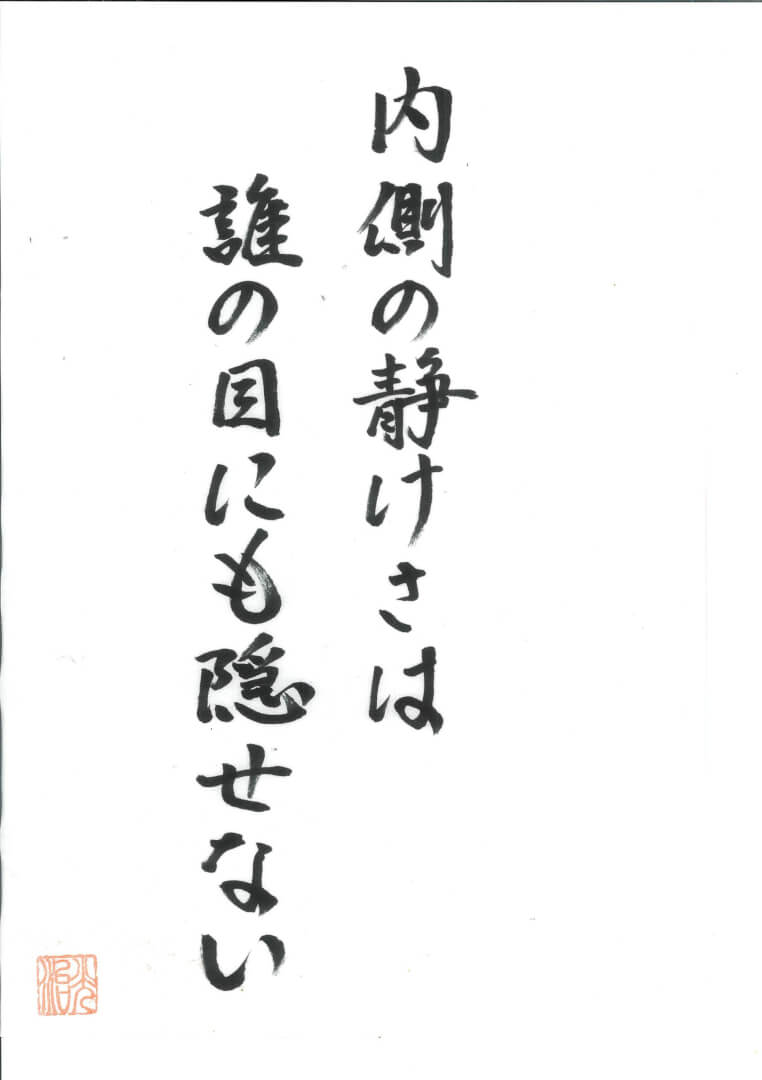 内側の静けさは
誰の目にも隠せない